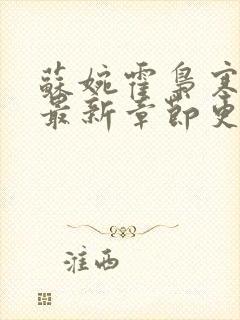 苏婉霍枭寒
最新章节更
淮西